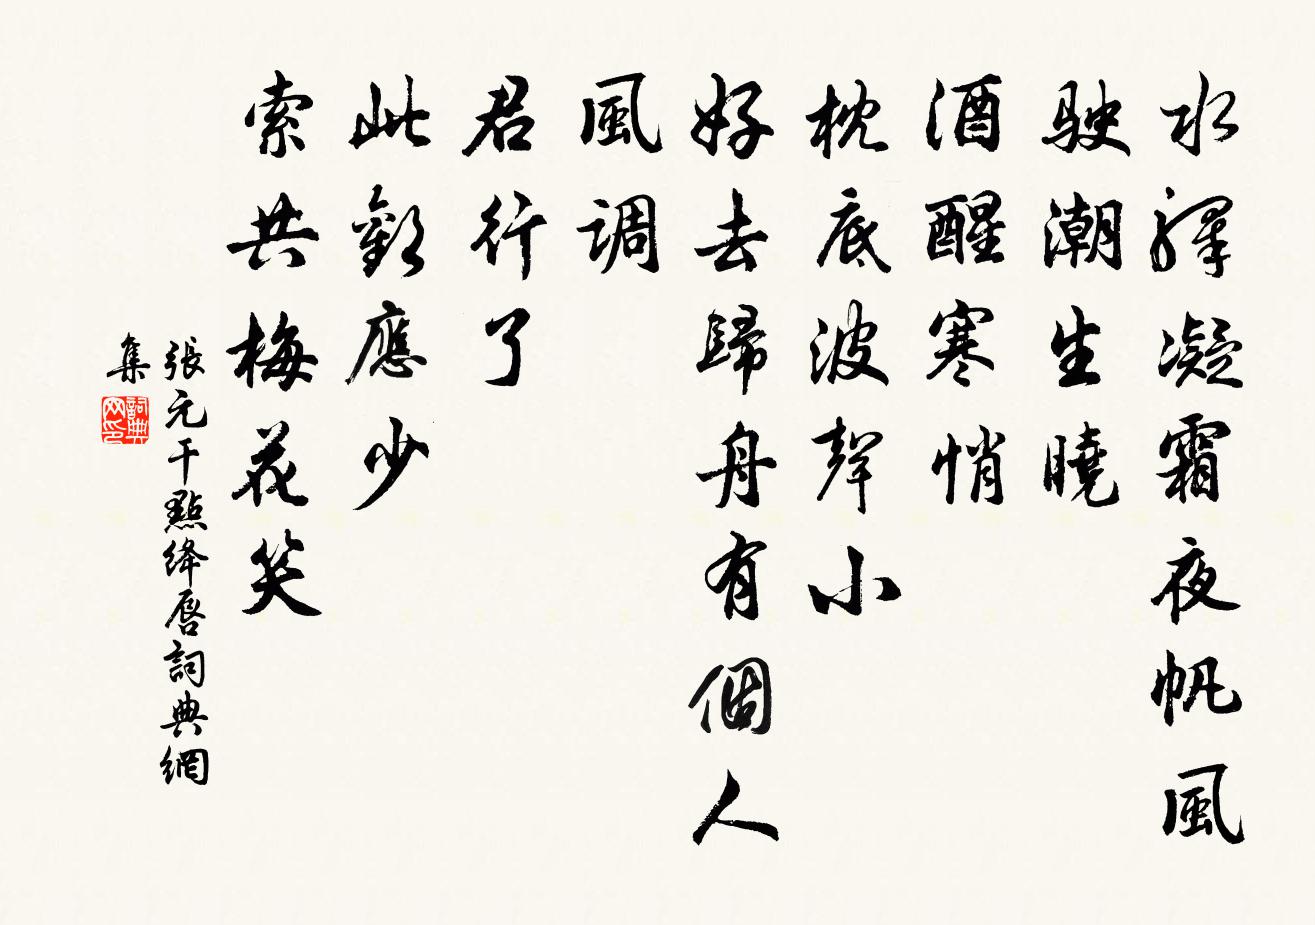 水驛凝霜夜帆風
駛潮生曉
酒醒寒悄
枕底波聲小
好去歸舟有個人
風调
君行了
此歡應少
索共梅花笑
張元干點絳唇詞典網
集
詞典网印